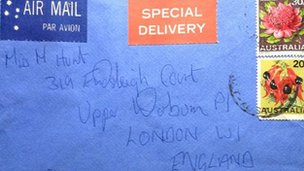 AIR MAIL
PAR AVION
SPECIAL
DELIVERY
30c
AUSTRALIA
20
AUSTRALIA
Miss M Hunt
Court
Upper Woburn Pl
LONDON W1
ENGLAND